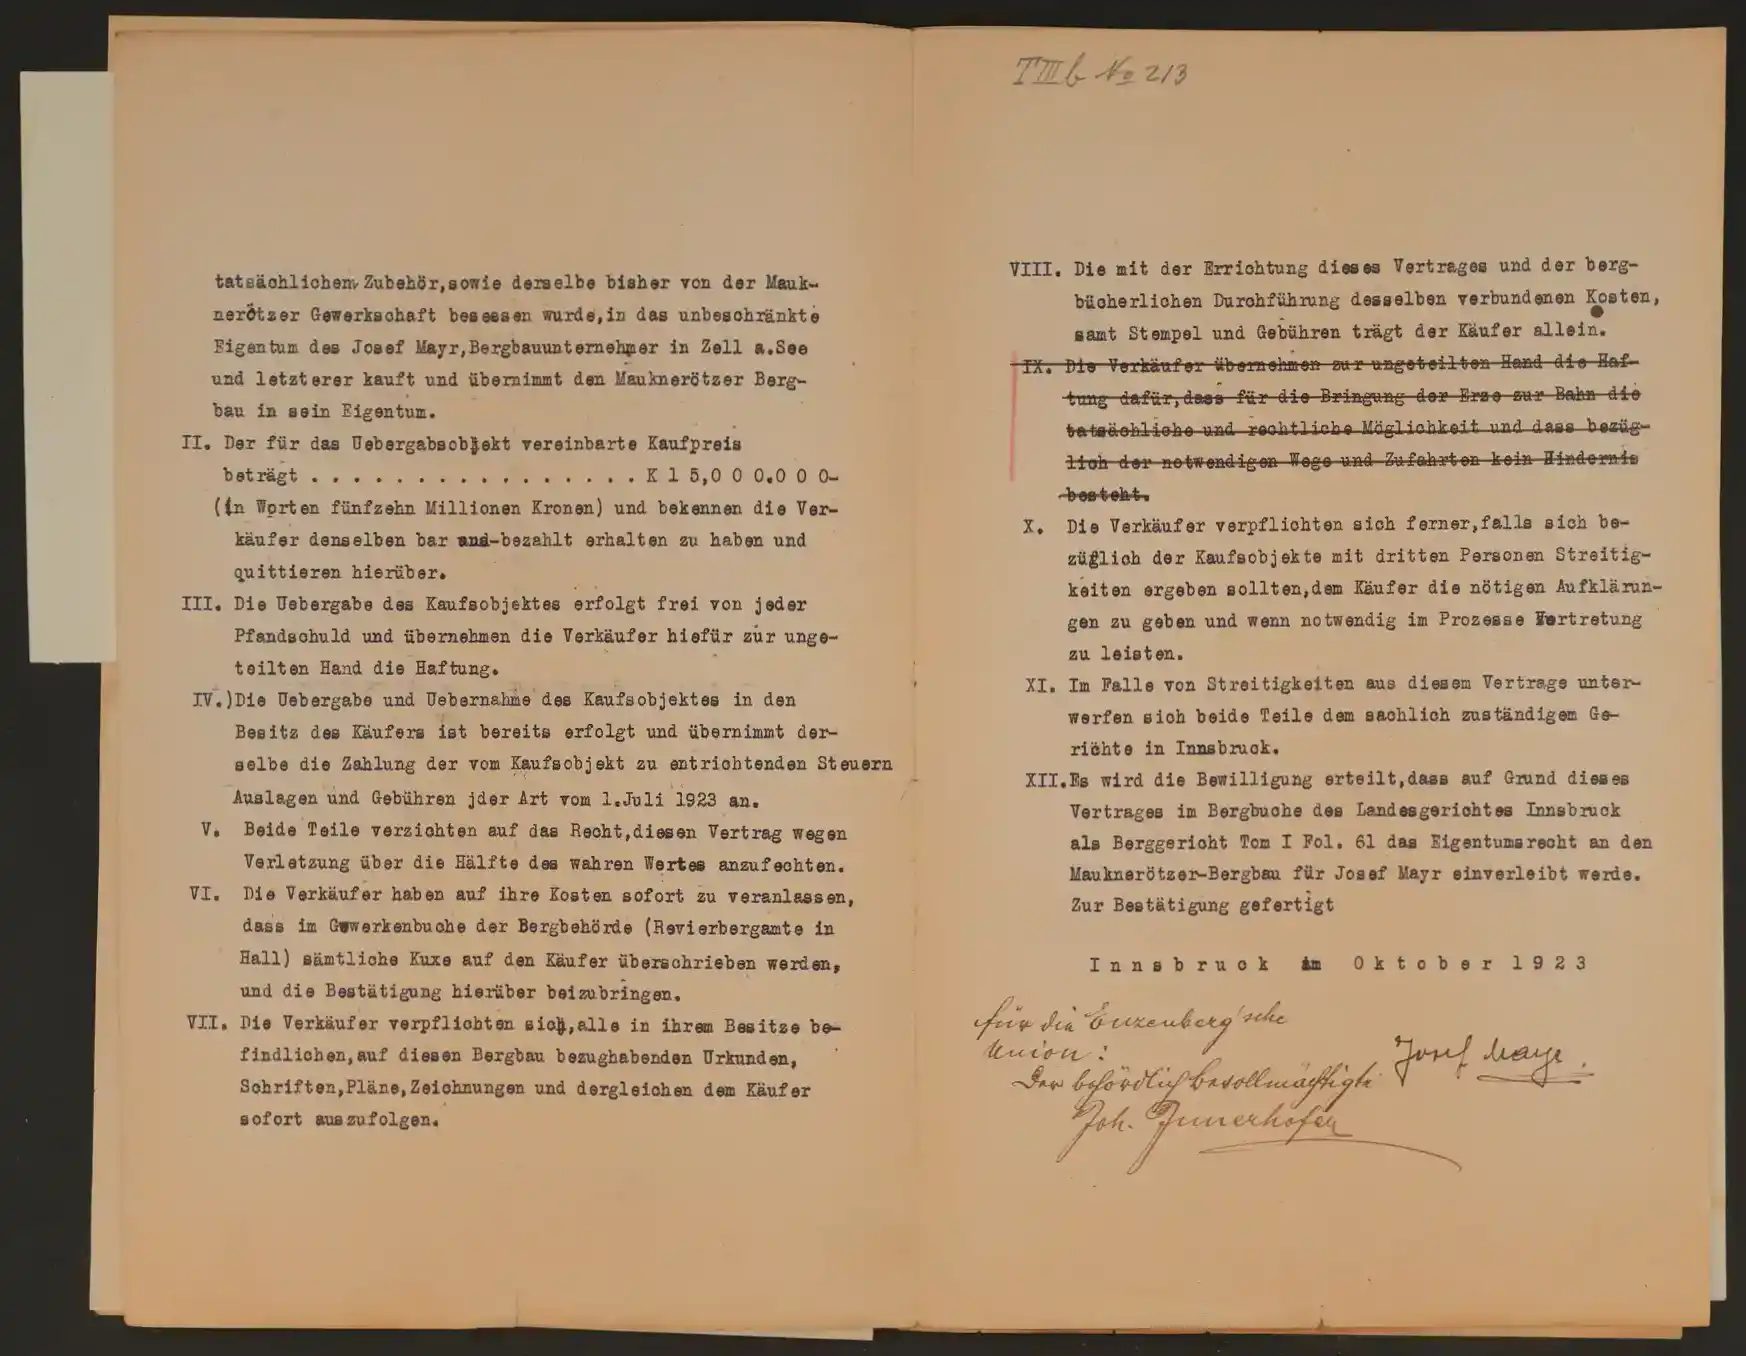 tatsächlichem Zubehör,sowie derselbe bisher von der Mauk-
nerötzer Gewerkschaft besessen wurde,in das unbeschränkte
Eigentum des Josef Mayr,Bergbauunternehmer in Zell a.See
und letzterer kauft und übernimmt den Mauknerötzer Berg-
bau in sein Eigentum.
II. Der für das Uebergabsobjekt vereinbarte Kaufpreis
beträgt . . . . . . . . . . . . . . . . K 1 5,0 0 0.0 0 0-
(in Worten fünfzehn Millionen Kronen) und bekennen die Ver-
käufer denselben bar und-bezahlt erhalten zu haben und
quittieren hierüber.
III. Die Uebergabe des Kaufsobjektes erfolgt frei von jeder
Pfandschuld und übernehmen die Verkäufer hiefür zur unge-
teilten Hand die Haftung.
IV.)Die Uebergabe und Uebernahme des Kaufsobjektes in den
Besitz des Käufers ist bereits erfolgt und übernimmt der-
selbe die Zahlung der vom Kaufsobjekt zu entrichtenden Steuern
Auslagen und Gebühren jder Art vom 1.Juli 1923 an.
V. Beide Teile verzichten auf das Recht,diesen Vertrag wegen
Verletzung über die Hälfte des wahren Wertes anzufechten.
VI. Die Verkäufer haben auf ihre Kosten sofort zu veranlassen,
dass im Gewerkenbuche der Bergbehörde (Revierbergamte in
Hall) sämtliche Kuxe auf den Käufer überschrieben werden,
und die Bestätigung hierüber beizubringen.
VII. Die Verkäufer verpflichten sich,alle in ihrem Besitze be-
findlichen,auf diesen Bergbau bezughabenden Urkunden,
Schriften,Pläne,Zeichnungen und dergleichen dem Käufer
sofort auszufolgen.
T III b No 213
VIII. Die mit der Errichtung dieses Vertrages und der berg-
bücherlichen Durchführung desselben verbundenen Kosten,
samt Stempel und Gebühren trägt der Käufer allein.
IX. Die Verkäufer übernehmen zur ungeteilten Hand die Haf-
tung dafür,dass für die Bringung der Erze zur Bahn die
tatsächliche und rechtliche Möglichkeit und dass bezüg-
lich der notwendigen Wege und Zufahrten kein Hindernis
besteht.
X. Die Verkäufer verpflichten sich ferner,falls sich be-
züglich der Kaufsobjekte mit dritten Personen Streitig-
keiten ergeben sollten,dem Käufer die nötigen Aufklärun-
gen zu geben und wenn notwendig im Prozesse Vertretung
zu leisten.
XI. Im Falle von Streitigkeiten aus diesem Vertrage unter-
werfen sich beide Teile dem sachlich zuständigem Ge-
richte in Innsbruck.
XII.Es wird die Bewilligung erteilt,dass auf Grund dieses
Vertrages im Bergbuche des Landesgerichtes Innsbruck
als Berggericht Tom I Fol. 61 das Eigentumsrecht an den
Mauknerötzer-Bergbau für Josef Mayr einverleibt werde.
Zur Bestätigung gefertigt
I n n s b r u c k im O k t o b e r 1 9 2 3
für die Enzenberg'sche
Union:
Josef Mayr.
Der behördlich bevollmächtigte
Joh. Innerhofer